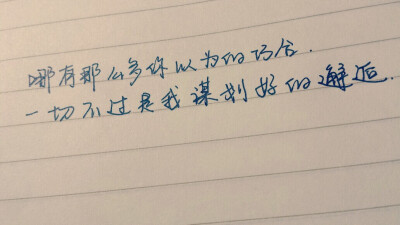 哪有那么多你以为的巧合.
一切不过是我谋划好的邂逅.